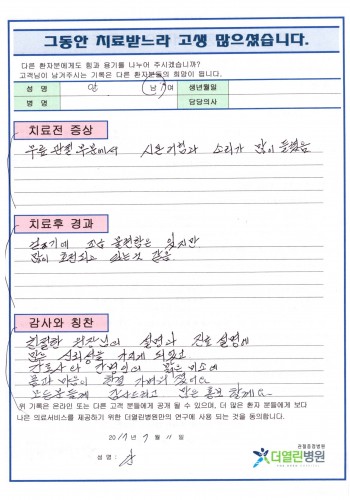 그동안 치료받느라 고생 많으셨습니다.
다른 환자분에게도 힘과 용기를 나누어 주시겠습니까?
고객님이 남겨주시는 기록은 다른 환자분들의 희망이 됩니다.
성 명 안 남/여 생년월일
병 명 담당의사
치료전 증상
무릎 관절 부분에서 시온거림과 소리가 많이 들렸음
치료후 경과
걷기에 조금 불편함은 있지만
많이 호전되고 있는것 같음
감사와 칭찬
친절한 원장님의 설명과 진료 설명에
많은 신뢰성을 가지게 되었고
간호사와 간병인의 밝은 미소에
몸과 마음이 한결 가벼워
모든분들께 감사드리고 많은 홍보 할께요.
위 기록은 온라인 또는 다른 고객 분들에게 공개 될 수 있으며, 더 많은 환자 분들에게 보다
나은 의료서비스를 제공하기 위한 더열린병원만의 연구에 사용 되는 것을 동의합니다.
2017년 7월 11일
성 명 : 안
관절중점병원
더열린병원